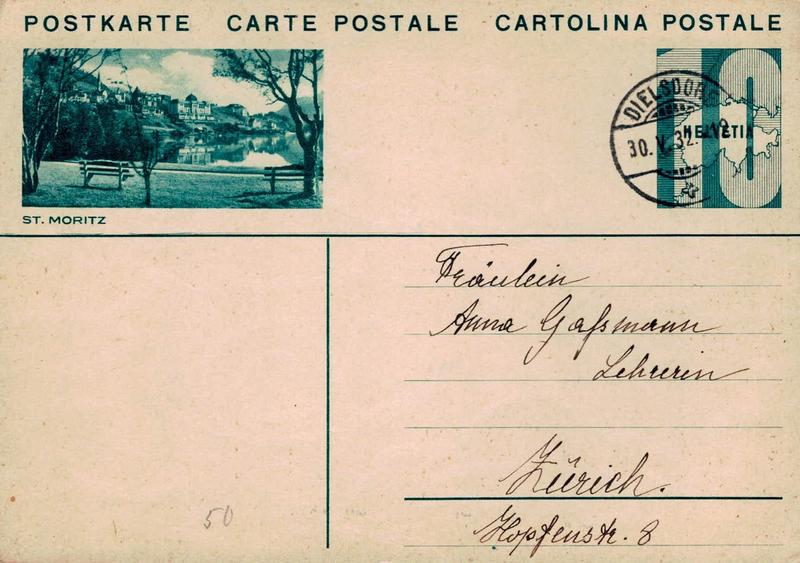 POSTKARTE CARTE POSTALE CARTOLINA POSTALE
10
HELVETIA
DIELSDORF
30. V. 32.
ST. MORITZ
Fräulein
Anna Gaſsmann
Lehrerin
Zürich.
Hopfenstr. 8
50